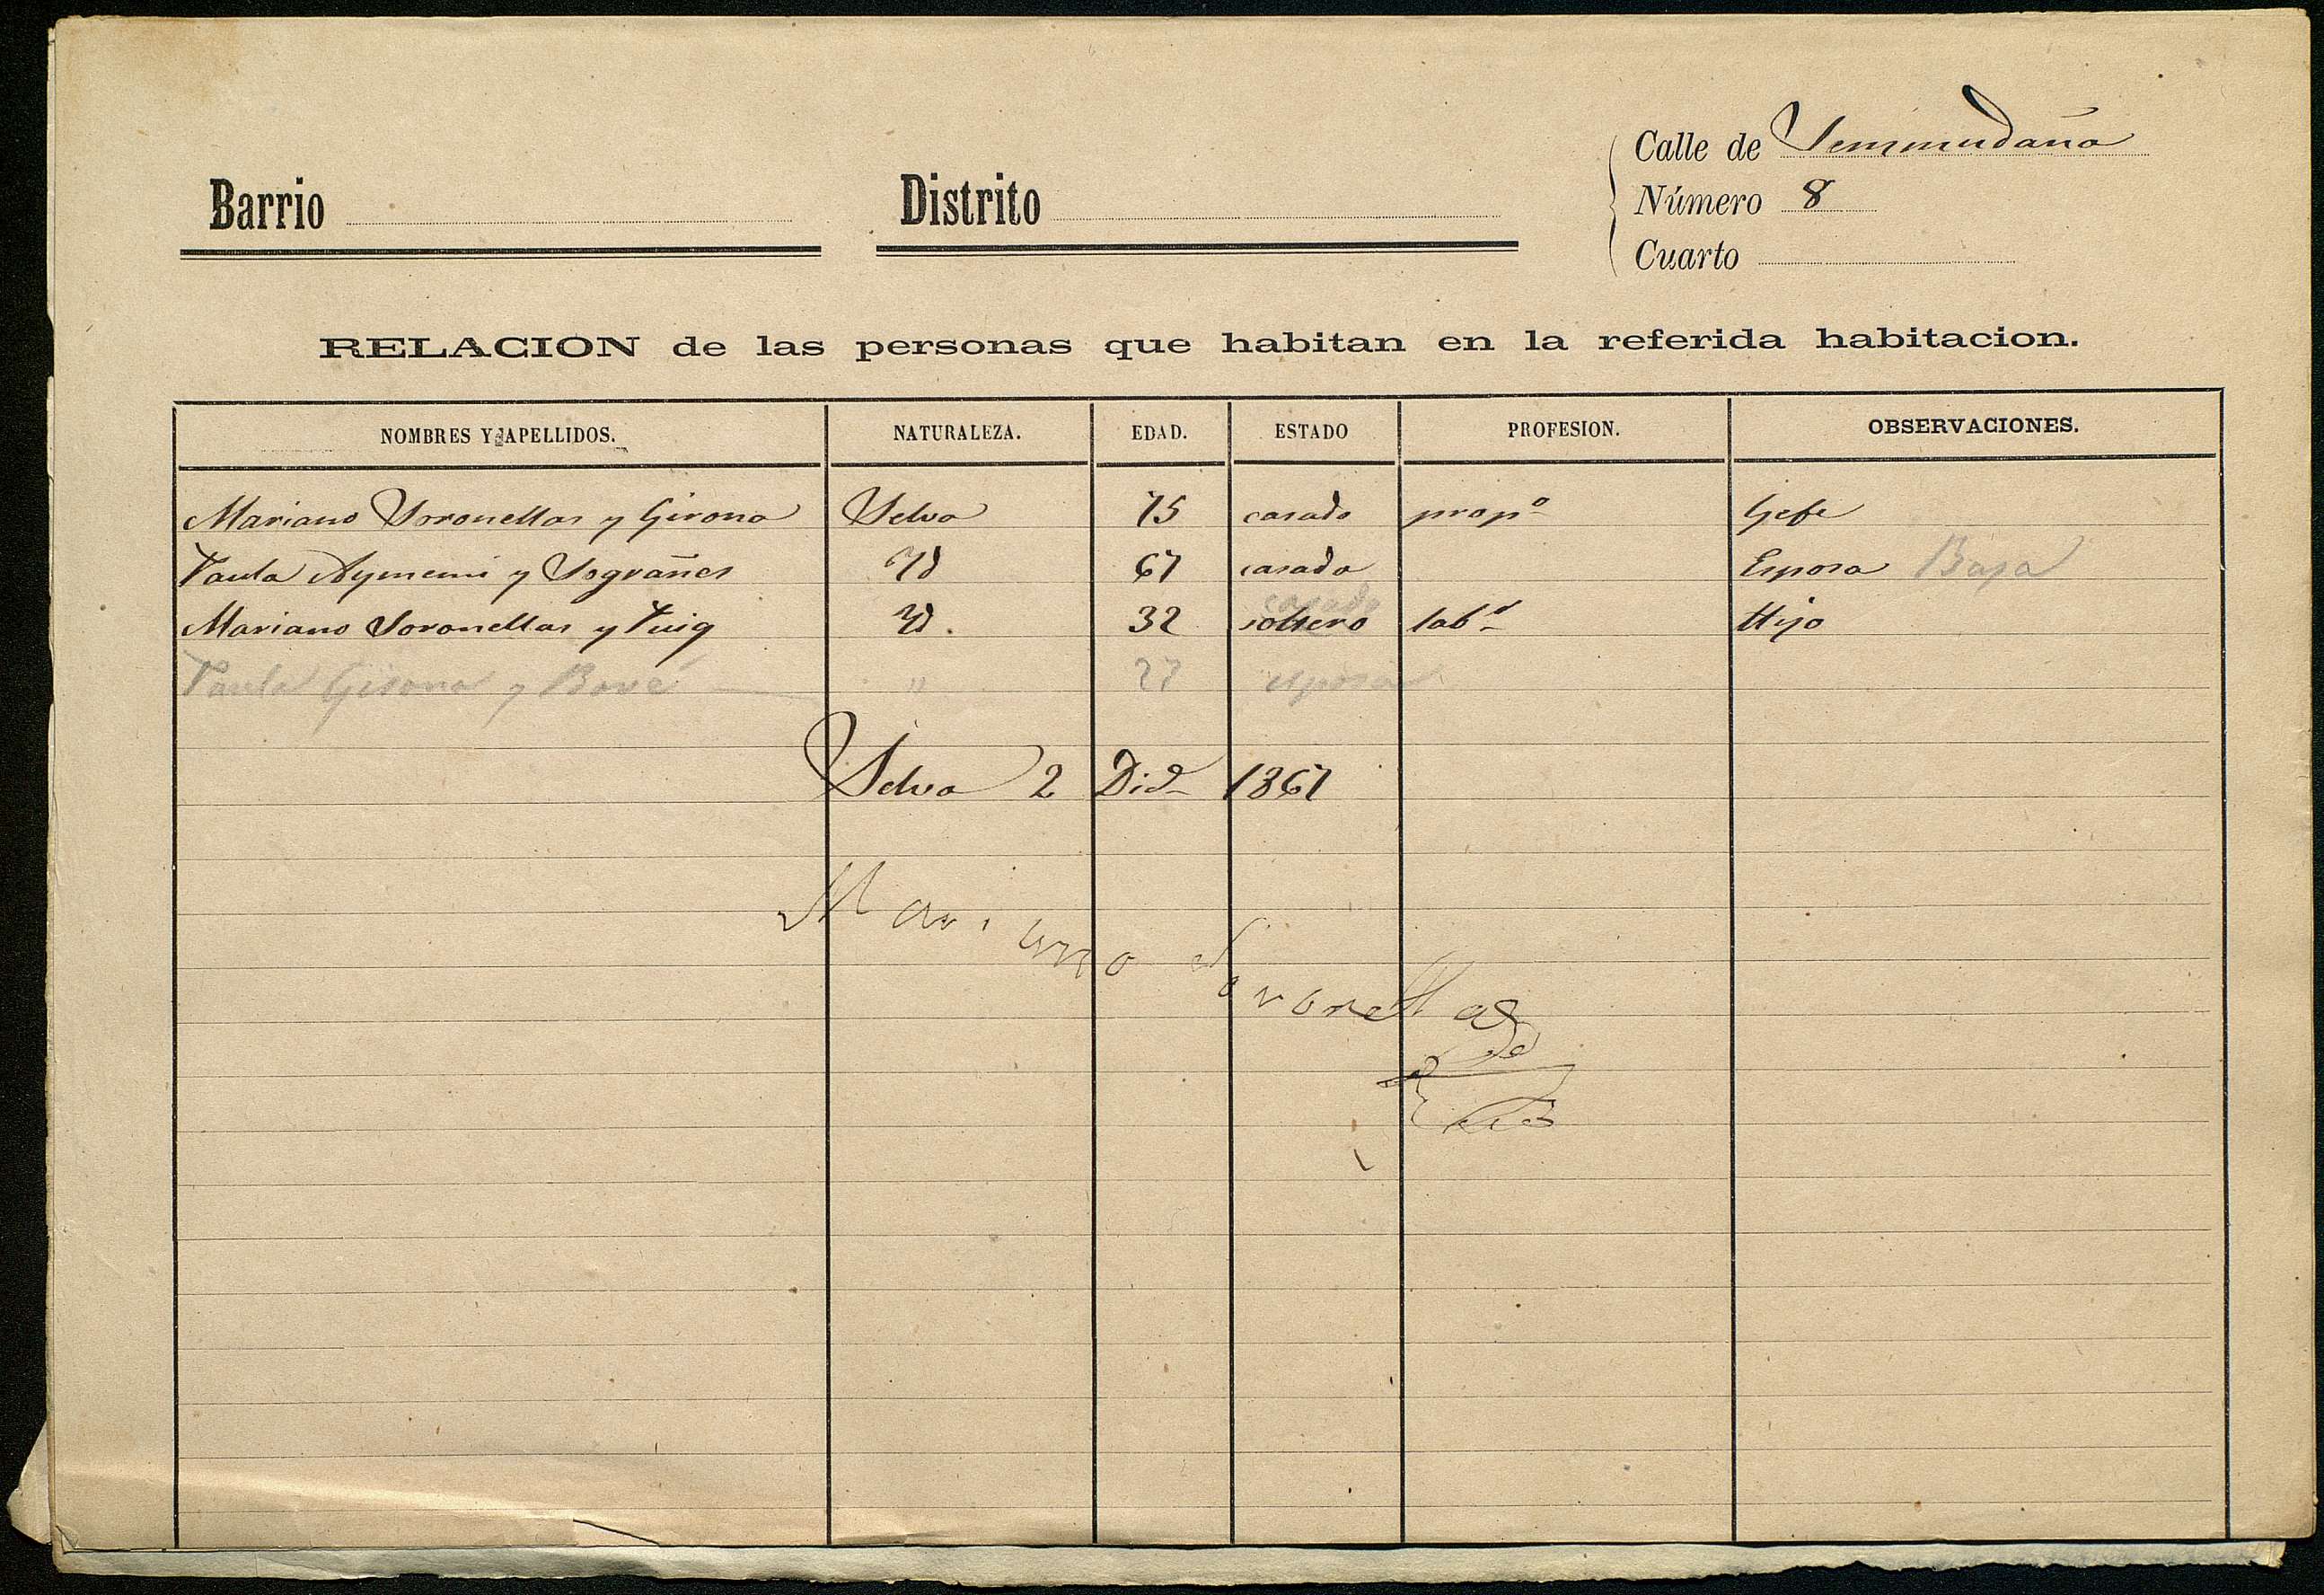 Calle de Semmudaña
Barrio Distrito Número 8
Cuarto
RELACION de las personas que habitan en la referida habitacion.
NOMBRES Y APELLIDOS. NATURALEZA. EDAD. ESTADO PROFESION. OBSERVACIONES.
Mariano Soronellas y Girona Selva 75 casado propº Gefe
Paula Aymemi y Sograñes Yd 67 casada Esposa Baja
casado
Mariano Soronellas y Puig Yd. 32 soltero labr Hijo
Paula Girona y Bové " 27 esposa
Selva 2 Dic 1867
Mariano Soronellas